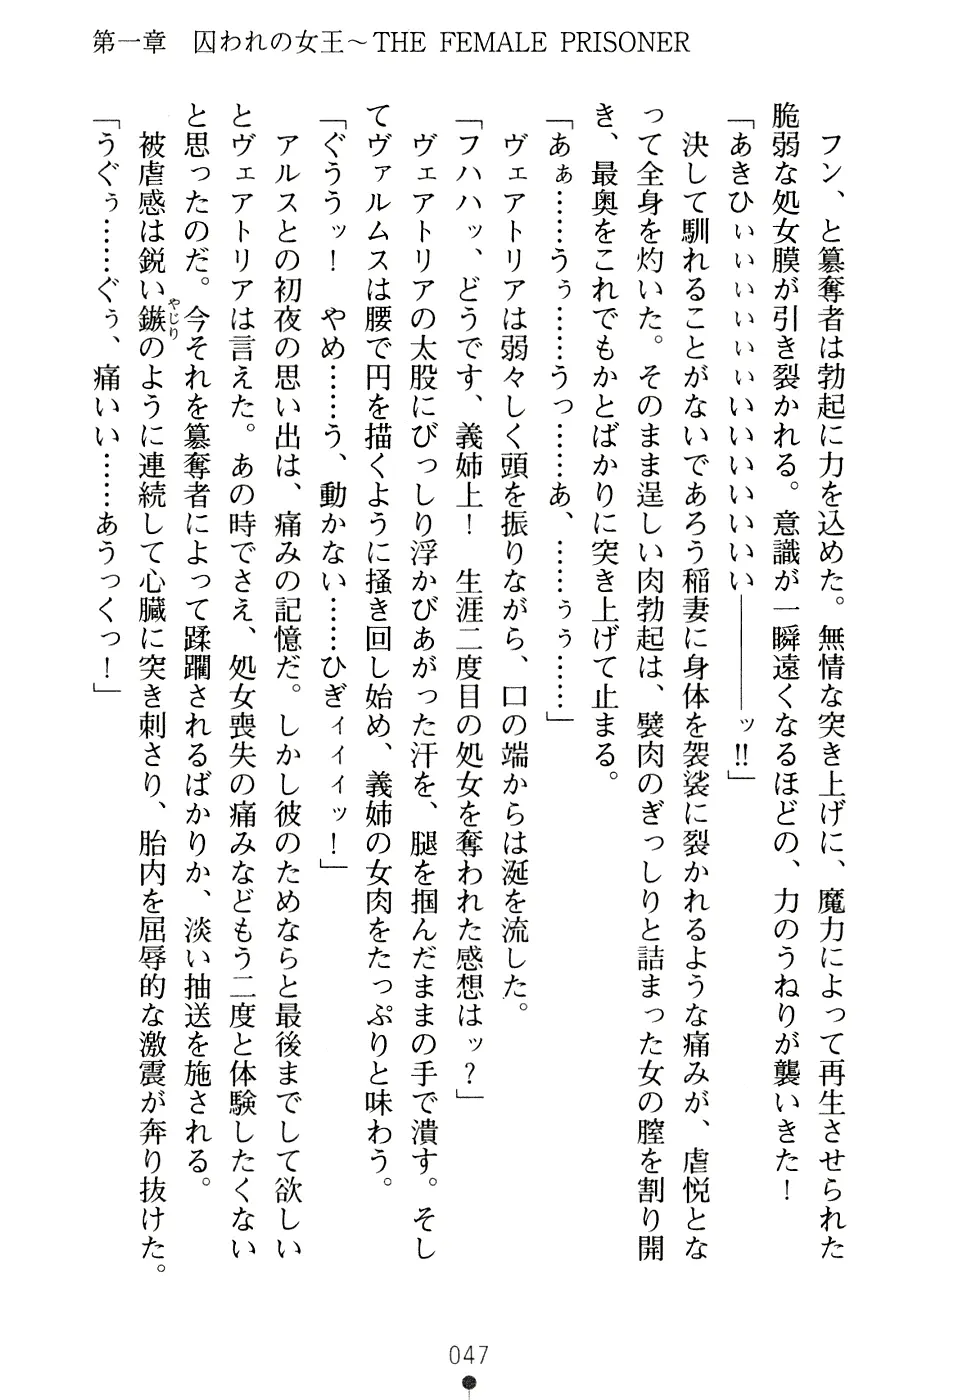 第一章　囚われの女王～THE FEMALE PRISONER
　フン、と簒奪者は勃起に力を込めた。無情な突き上げに、魔力によって再生させられた
脆弱な処女膜が引き裂かれる。意識が一瞬遠くなるほどの、力のうねりが襲いきた！
「あきひぃぃぃぃぃぃいいいいいい――――ッ!!」
　決して馴れることがないであろう稲妻に身体を袈裟に裂かれるような痛みが、虐悦とな
って全身を灼いた。そのまま逞しい肉勃起は、襞肉のぎっしりと詰まった女の膣を割り開
き、最奥をこれでもかとばかりに突き上げて止まる。
「あぁ……うぅ……うっ……あ、……ぅぅ……」
　ヴェアトリアは弱々しく頭を振りながら、口の端からは涎を流した。
「フハハッ、どうです、義姉上！　生涯二度目の処女を奪われた感想はッ？」
　ヴェアトリアの太股にびっしり浮かびあがった汗を、腿を掴んだままの手で潰す。そし
てヴァルムスは腰で円を描くように掻き回し始め、義姉の女肉をたっぷりと味わう。
「ぐううッ！　やめ……う、動かない……ひぎィィィッ！」
　アルスとの初夜の思い出は、痛みの記憶だ。しかし彼のためならと最後までして欲しい
とヴェアトリアは言えた。あの時でさえ、処女喪失の痛みなどもう二度と体験したくない
と思ったのだ。今それを簒奪者によって蹂躙されるばかりか、淡い抽送を施される。
　被虐感は鋭い鏃やじりのように連続して心臓に突き刺さり、胎内を屈辱的な激震が奔り抜けた。
「うぐぅ……ぐぅ、痛いい……あうっくっ！」
047